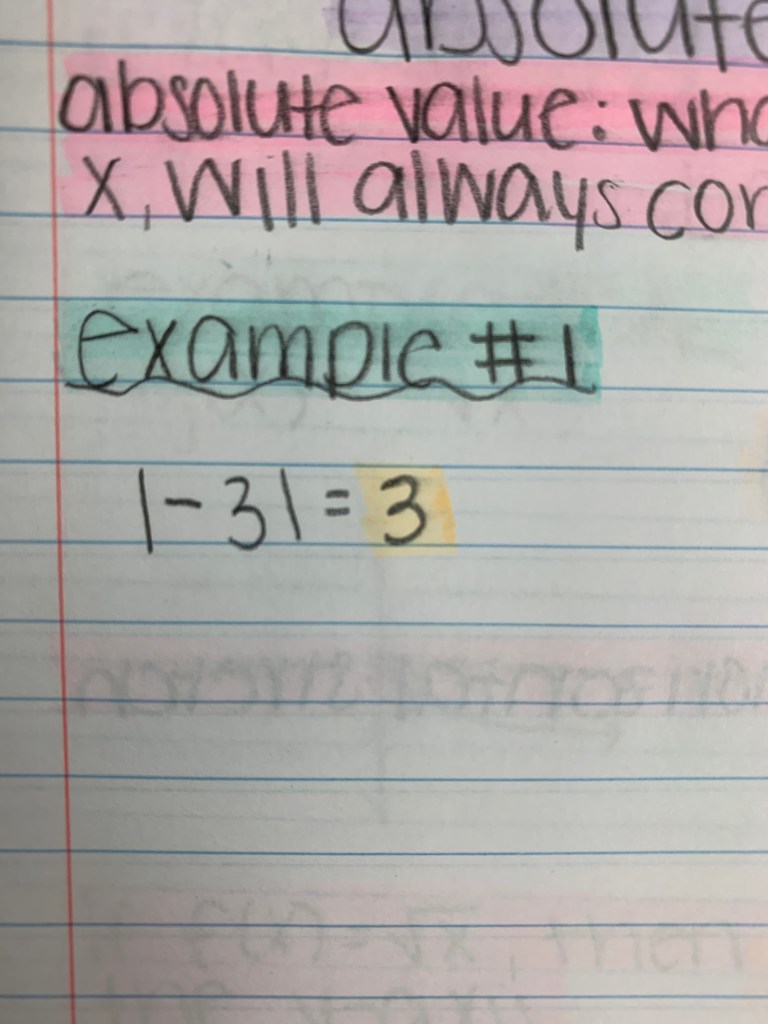 absolute
absolute value:
x, will always
example #1
|-3| = 3